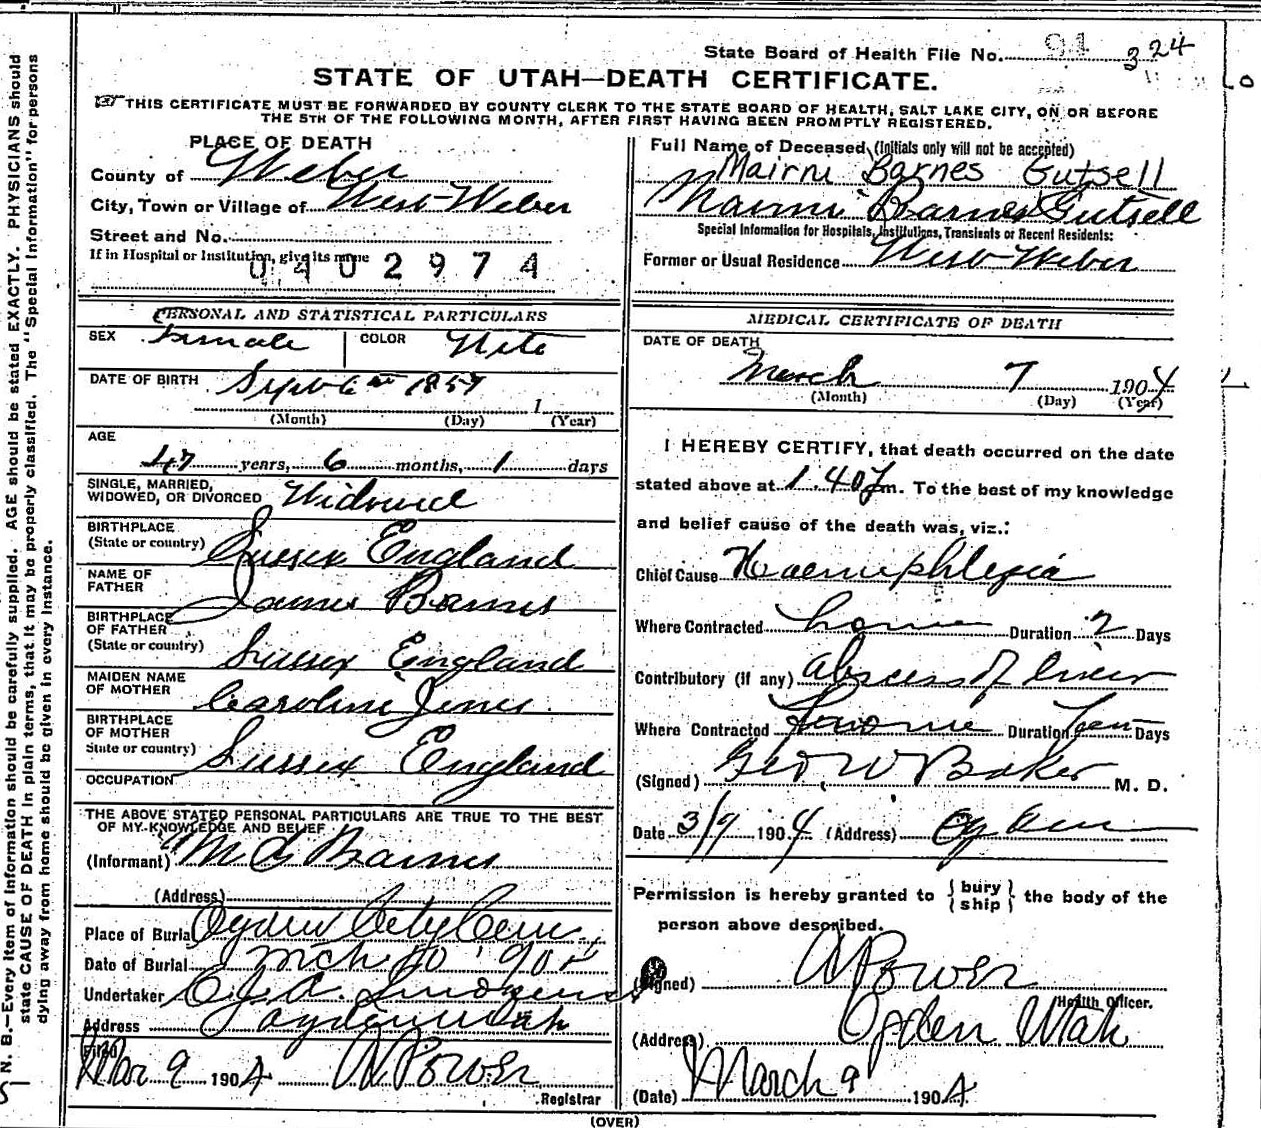 State Board of Health File No. 91 324
STATE OF UTAH—DEATH CERTIFICATE.
THIS CERTIFICATE MUST BE FORWARDED BY COUNTY CLERK TO THE STATE BOARD OF HEALTH, SALT LAKE CITY, ON OR BEFORE
THE 5TH OF THE FOLLOWING MONTH, AFTER FIRST HAVING BEEN PROMPTLY REGISTERED.
PLACE OF DEATH
County of Weber
City, Town or Village of West Weber
Street and No.
If in Hospital or Institution, give its name
0402974
Full Name of Deceased (Initials only will not be accepted)
Mairni Barnes Gutsell
Mairni Barnes Gutsell
Special Information for Hospitals, Institutions, Transients or Recent Residents:
Former or Usual Residence West Weber
PERSONAL AND STATISTICAL PARTICULARS
SEX Female COLOR White
DATE OF BIRTH Sept 6th 1857
1
(Month) (Day) (Year)
AGE
47 years, 6 months, 1 days
SINGLE, MARRIED,
WIDOWED, OR DIVORCED Widowed
BIRTHPLACE
(State or country) Sussex England
NAME OF
FATHER James Barnes
BIRTHPLACE
OF FATHER
(State or country) Sussex England
MAIDEN NAME
OF MOTHER Caroline Jenns
BIRTHPLACE
OF MOTHER
State or country) Sussex England
OCCUPATION
THE ABOVE STATED PERSONAL PARTICULARS ARE TRUE TO THE BEST
OF MY KNOWLEDGE AND BELIEF
(Informant) M G Barnes
(Address)
Place of Burial Ogden City Cem
Date of Burial Mch 10 190
Undertaker
Address Ogden Utah
Filed
Mar 9 1904 A Power
Registrar
MEDICAL CERTIFICATE OF DEATH
DATE OF DEATH
March 7 1904
(Month) (Day) (Year)
I HEREBY CERTIFY, that death occurred on the date
stated above at 1.40 m. To the best of my knowledge
and belief cause of the death was, viz.:
Chief Cause Haemiphlegia
Where Contracted home Duration 2 Days
Contributory (if any) abscess of liver
Where Contracted home Duration ten Days
(Signed) Geo W Baker M. D.
Date 3/9 1904 (Address) Ogden
Permission is hereby granted to { bury
ship } the body of the
person above described.
(Signed) A Power
Health Officer.
(Address) Ogden Utah
(Date) March 9 1904
(OVER)
N. B.—Every item of information should be carefully supplied. AGE should be stated EXACTLY. PHYSICIANS should
state CAUSE OF DEATH in plain terms, that it may be properly classified. The "Special Information" for persons
dying away from home should be given in every instance.